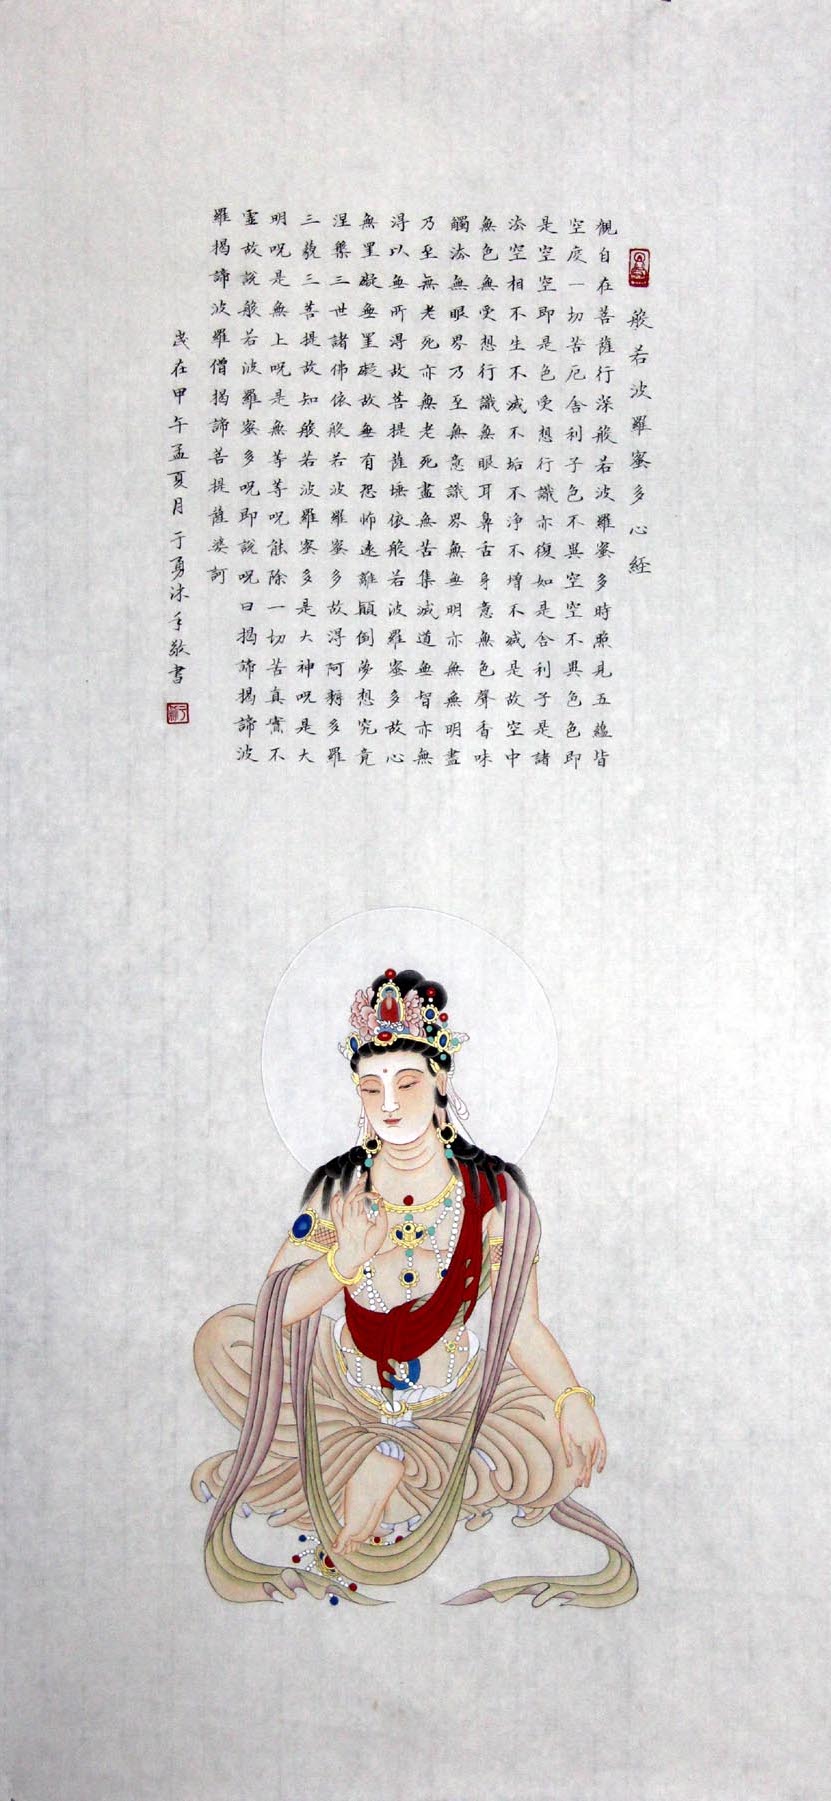 般若波羅蜜多心經
觀自在菩薩行深般若波羅蜜多時照見五蘊皆
空度一切苦厄舍利子色不異空空不異色色即
是空空即是色受想行識亦復如是舍利子是諸
法空相不生不滅不垢不淨不增不減是故空中
無色無受想行識無眼耳鼻舌身意無色聲香味
觸法無眼界乃至無意識界無無明亦無無明盡
乃至無老死亦無老死盡無苦集滅道無智亦無
得以無所得故菩提薩埵依般若波羅蜜多故心
無罣礙無罣礙故無有恐怖遠離顛倒夢想究竟
涅槃三世諸佛依般若波羅蜜多故得阿耨多羅
三藐三菩提故知般若波羅蜜多是大神呪是大
明呪是無上呪是無等等呪能除一切苦真實不
虛故說般若波羅蜜多呪即說呪曰揭諦揭諦波
羅揭諦波羅僧揭諦菩提薩婆訶
歲在甲午孟夏月于勇沐手敬書